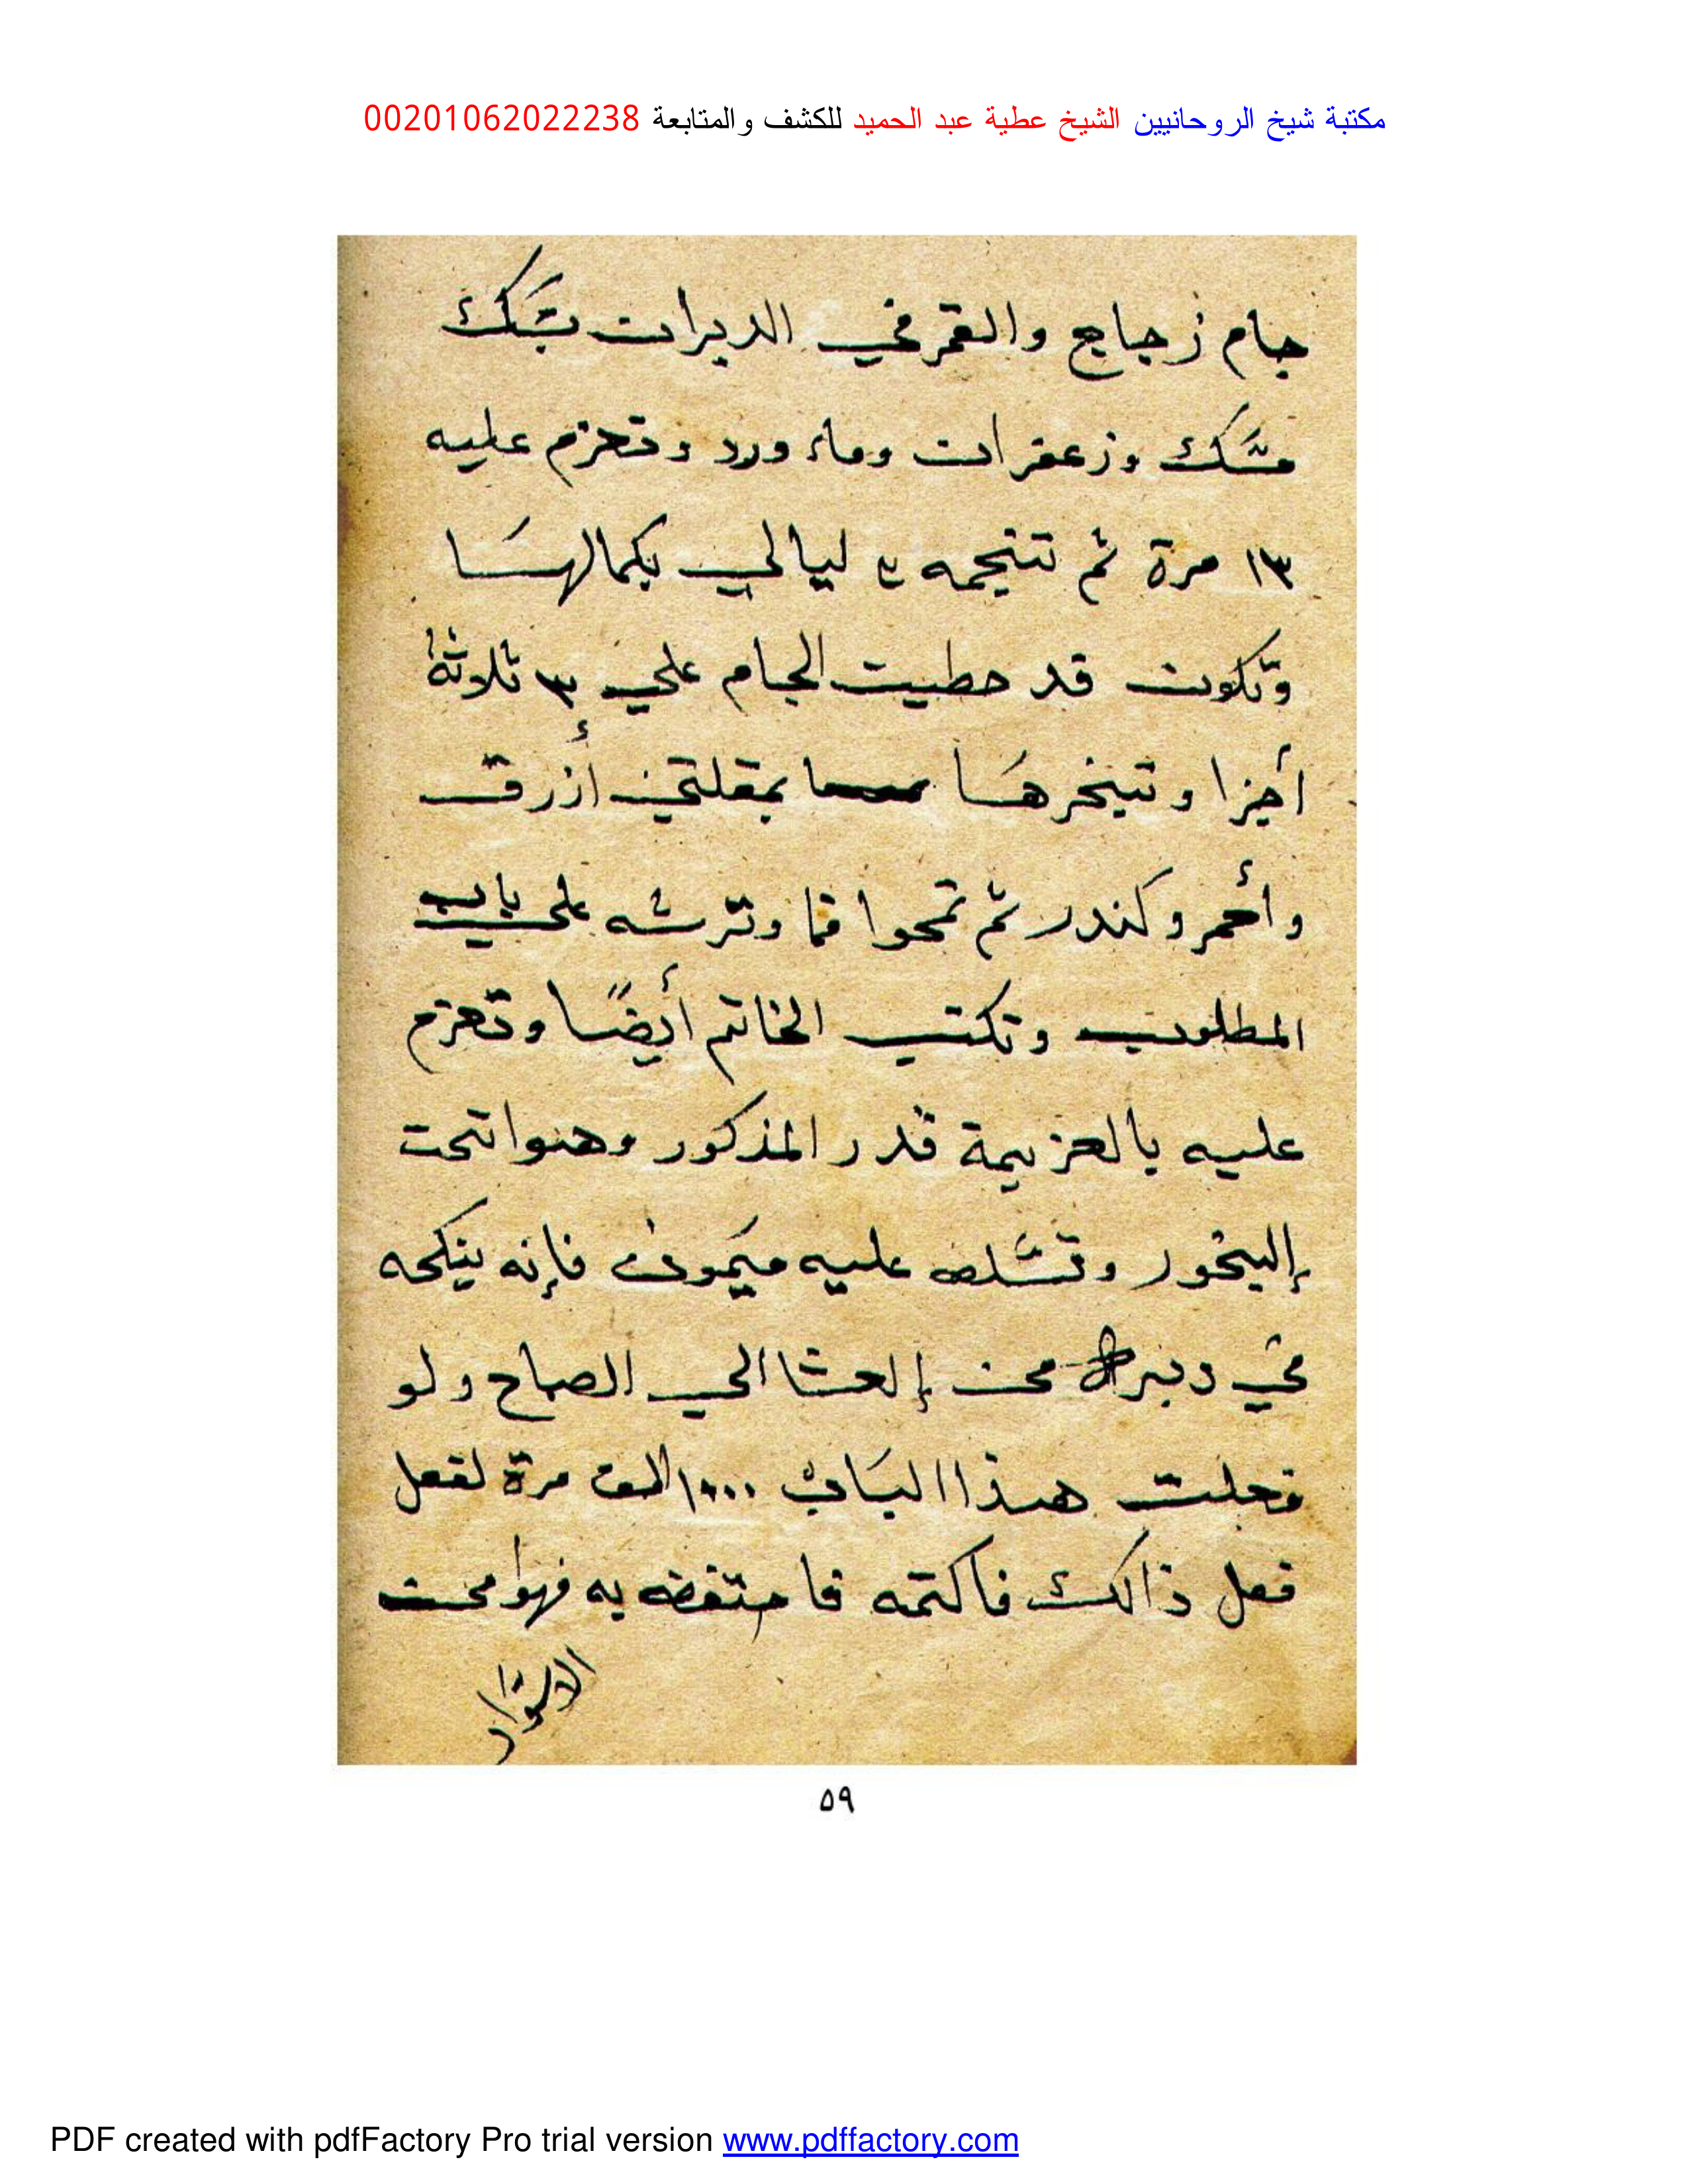 مكتبة شيخ الروحانيين الشيخ عطية عبد الحميد للكشف والمتابعة 00201062022238
جام زجاج والقمر في الدبران بسك
مسك وزعفران وماء ورد وتعزم عليه
١٣ مرة ثم تنجمه ليالي بكمالها
وتكون قد حطيت الجام علي ٣ ثلاثة
أجزا وتبخرها بمقلتين أزرق
وأحمر وكندر ثم تمحوا وترشه علي باب
المطلوب وتكتب الخاتم أيضًا وتعزم
عليه بالعزيمة قدر المذكور وهوا تحت
إلبخور وتسلط عليه ميمون فإنه ينكحه
في دبره من إلعشا الي الصباح ولو
فعلت هذا الباب ١٠٠٠ الف مرة لفعل
فعل ذالك فاكتمه به فهوا من
الاسرار
٥٩
PDF created with pdfFactory Pro trial version www.pdffactory.com